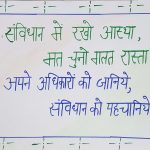 संविधान में रखो आस्था,
मत चुनो गलत रास्ता
अपने अधिकारों को जानिये,
संविधान को पहचानिये